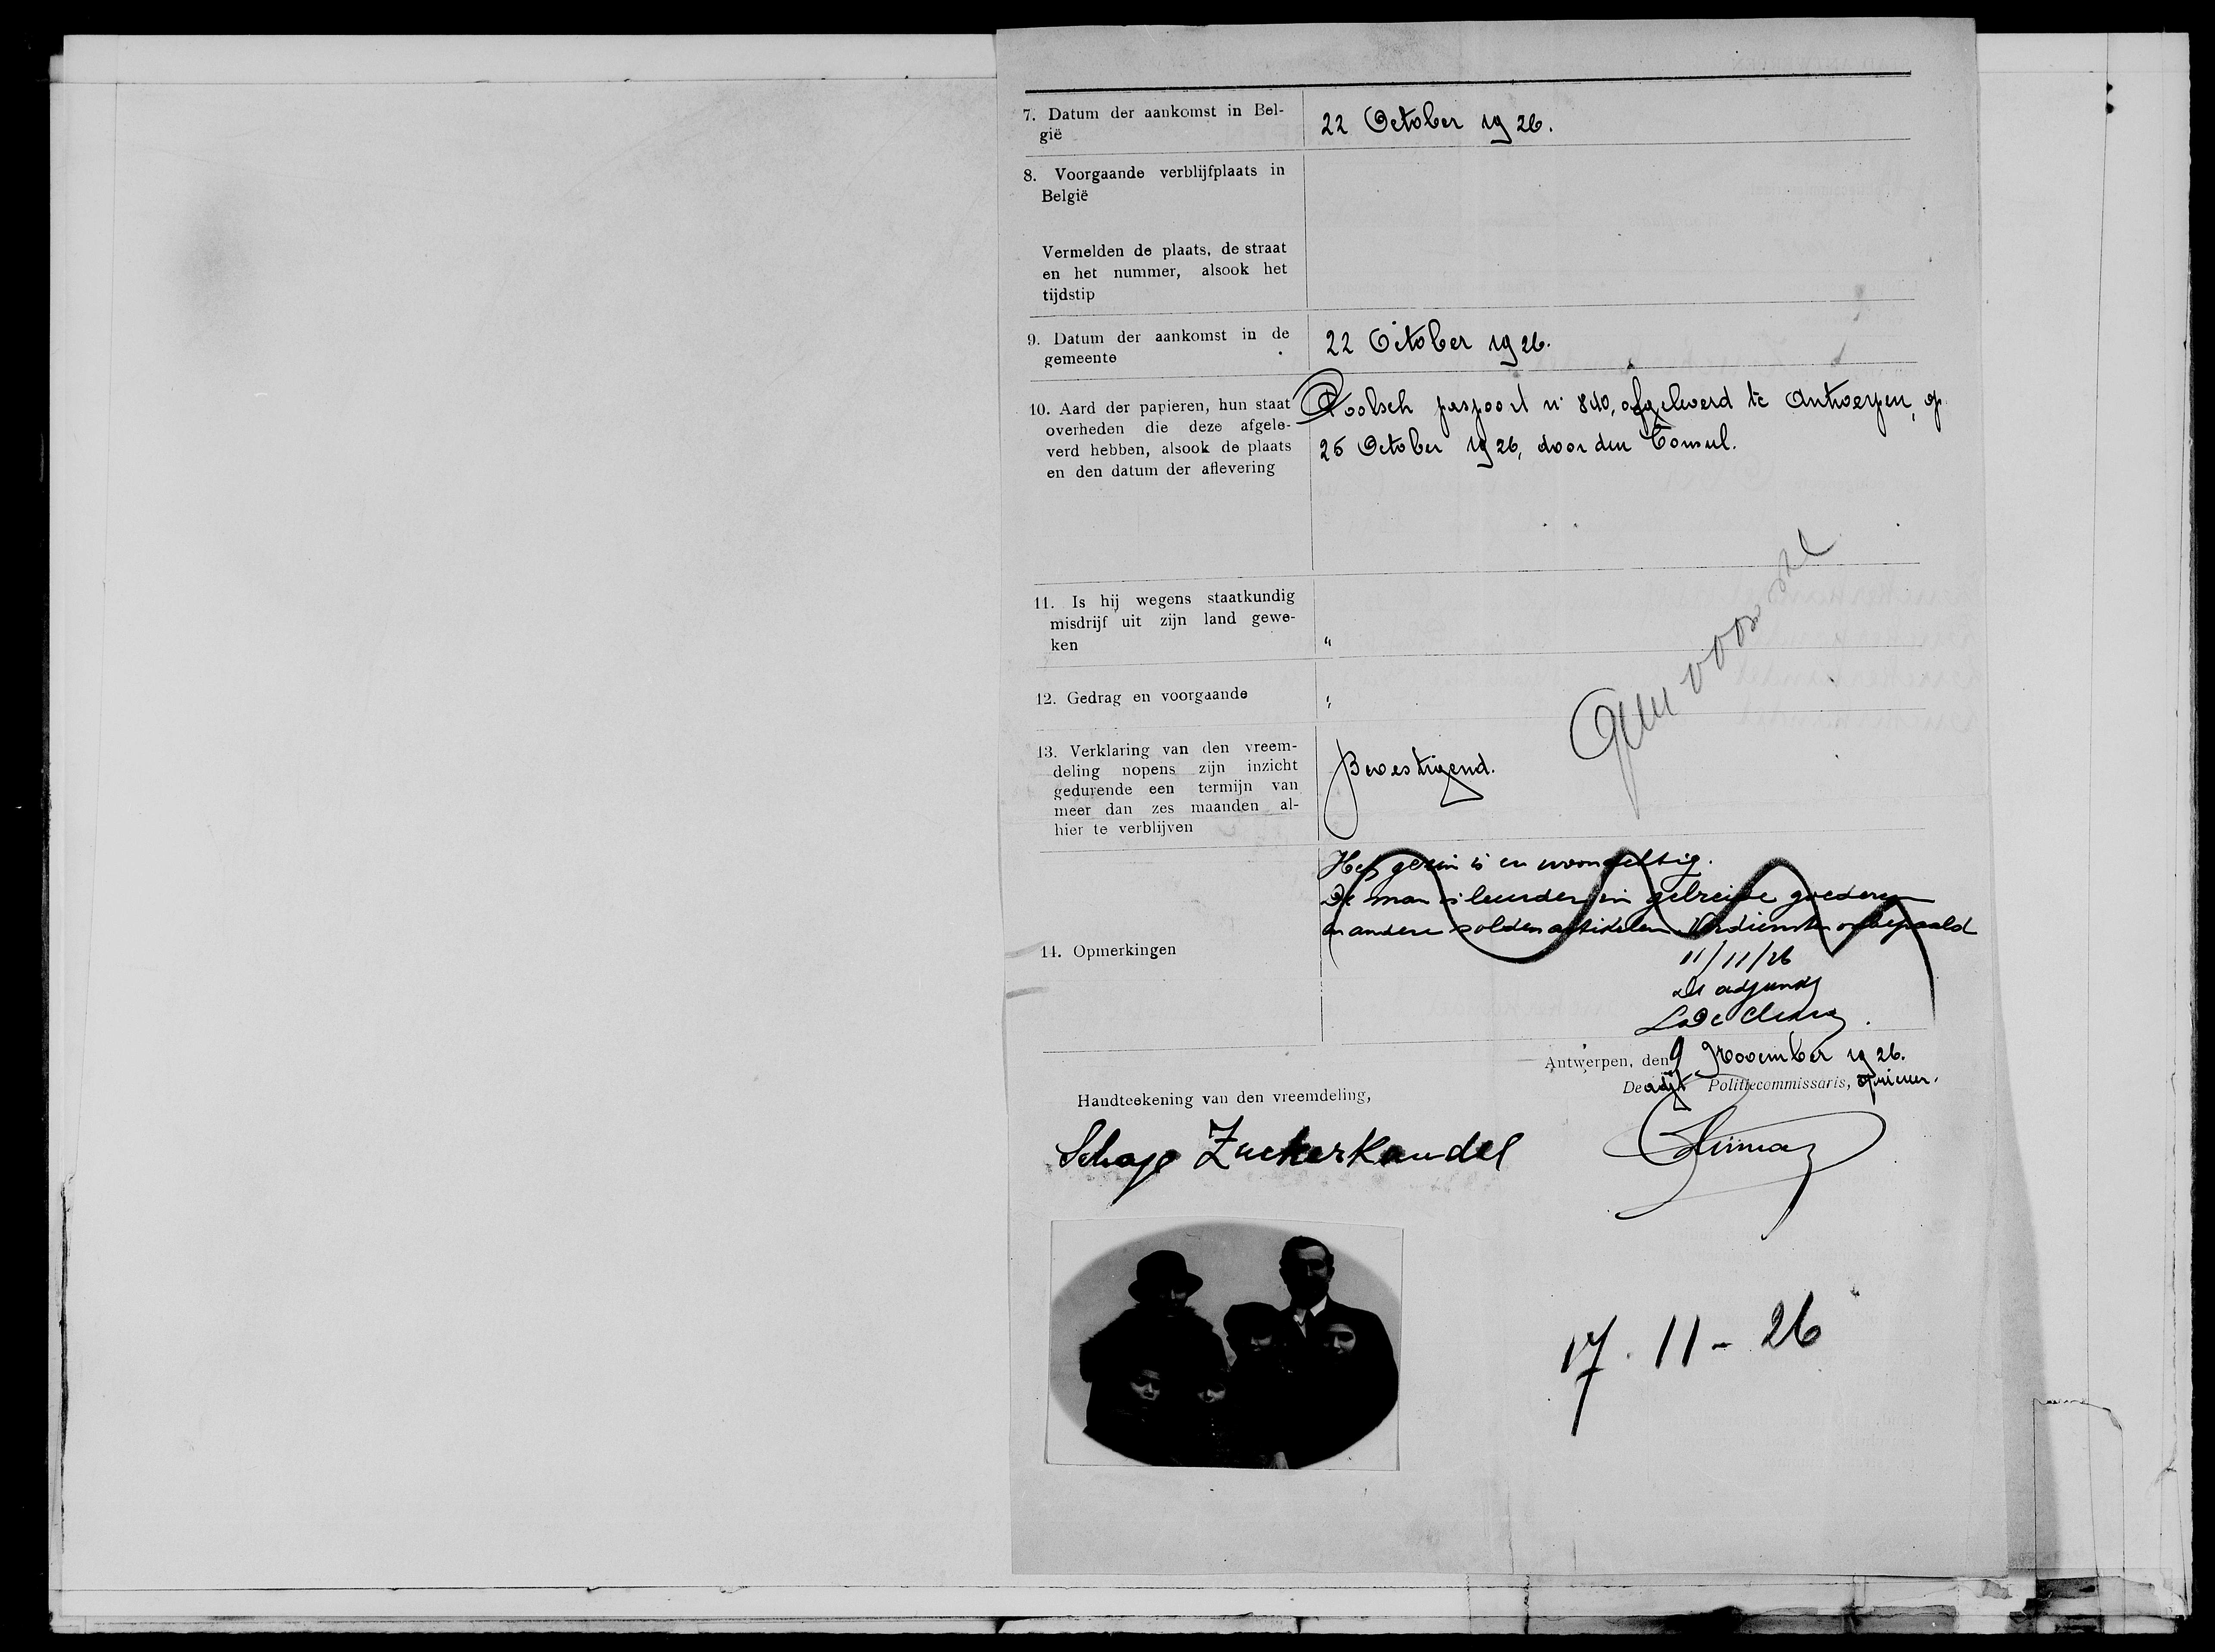 7. Datum der aankomst in Bel-
gië
22 October 1926.
8. Voorgaande verblijfplaats in
België
Vermelden de plaats, de straat
en het nummer, alsook het
tijdstip
9. Datum der aankomst in de
gemeente
22 October 1926.
10. Aard der papieren, hun staat
overheden die deze afgele-
verd hebben, alsook de plaats
en den datum der aflevering
Poolsch paspoort n° 840, afgeleverd te Antwerpen, op
26 October 1926, door den Consul.
11. Is hij wegens staatkundig
misdrijf uit zijn land gewe-
ken
"
12. Gedrag en voorgaande
"
Geen voorstel
13. Verklaring van den vreem-
deling nopens zijn inzicht
gedurende een termijn van
meer dan zes maanden al-
hier te verblijven
Bevestigend.
14. Opmerkingen
Het gezin is en woonachtig.
De man is leurder in gebreide goederen
en andere solden artikelen. Verdiensten onbepaald
11/11/26
De adjunkt
Antwerpen, den 9 November 1926.
De adjt Politiecommissaris,
Handteekening van den vreemdeling,
Schaje Zuckerkandel
17. 11 - 26